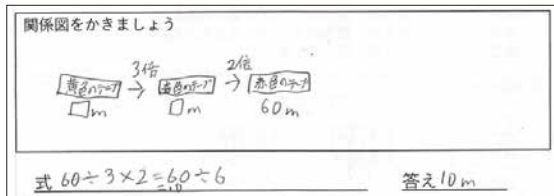 関係図をかきましょう
3倍 2倍
黄色のテープ → 青色のテープ → 赤色のテープ
□m □m 60m
式 60÷3×2=60÷6
=10
答え10m